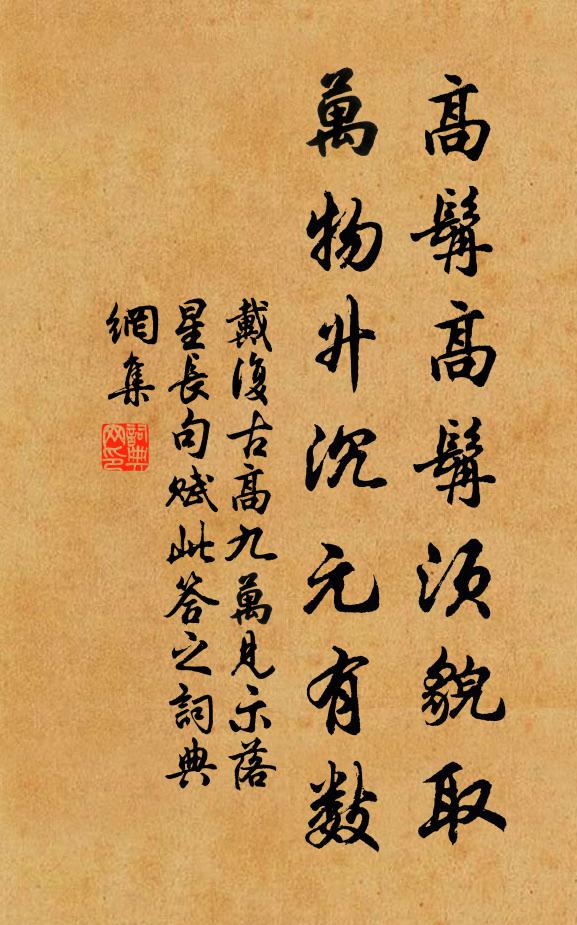 高髯高髯須貌取
萬物升沉元有數
戴復古高九萬見示落
星長句賦此答之詞典
網集
詞典
网印